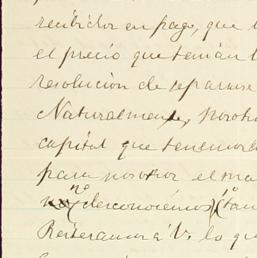 recibidos en pago, que
el precio que tenían
resolución de separarse
Naturalmente, nosotros
capital que tenemos
para nosotros el ma
no desconocemos tam
Reiteramos á V. lo qu